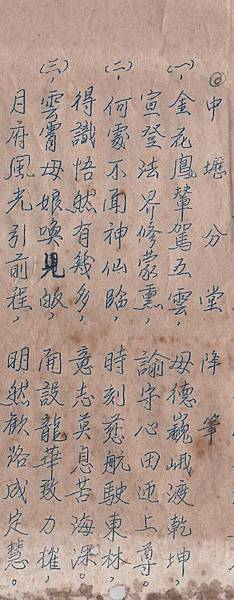 ◎中壢分堂降筆
(一)、金花鳳輦駕五雲，母德巍峨渡乾坤，
宣登法界修蒙熏，諭守心田迎上尊。
(二)、何處不聞神仙臨，時刻慈航駛東林，
得識悟然有幾多，意志莫息苦海深。
(三)、雲霄母娘喚兒皈，開設龍華致力催，
月府風光引前程，明然歡路成定慧。